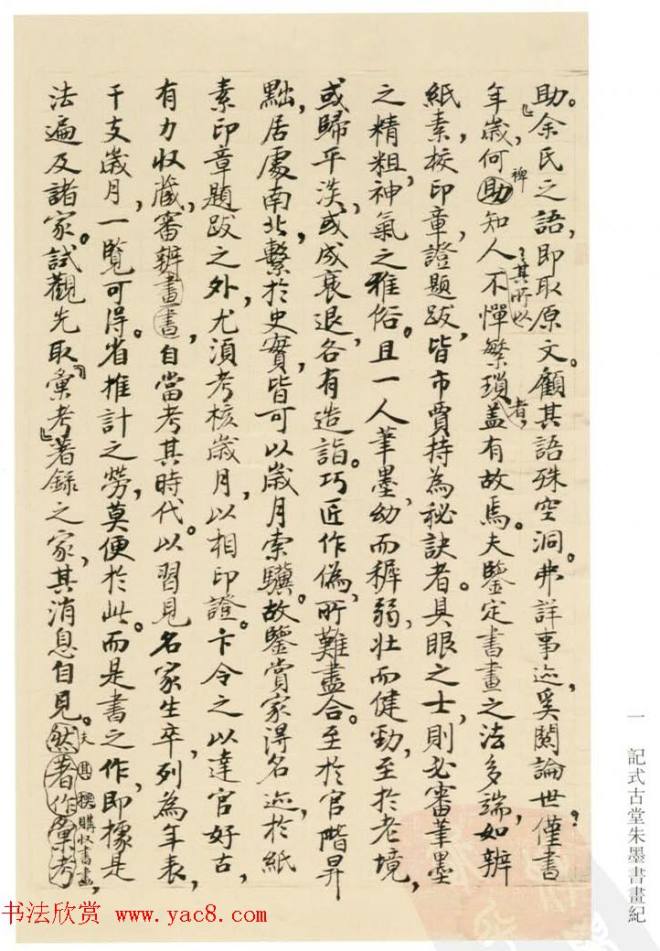 助。』余氏之語，即取原文。顧其語殊空洞。弗詳事迹，奚關論世？僅書
年歲，何助裨知人？其所以不憚繁瑣者，蓋有故焉。夫鑒定書畫之法多端，如辨
紙素，校印章，證題跋，皆市賈持為秘訣者。具眼之士，則必審筆墨
之精粗，神氣之雅俗。且一人筆墨，幼而穉弱，壯而健勁，至於老境，
或歸平淡，或成衰退，各有造詣。巧匠作偽，所難盡合。至於官階昇
黜，居處南北，繫於史實，皆可以歲月索驥。故鑒賞家得名迹，於紙
素印章題跋之外，尤須考核歲月，以相印證。卞令之以達官好古，
有力收藏，審辨畫書，自當考其時代。以習見名家生卒，列為年表，
干支歲月，一覽可得。省推計之勞，莫便於此。而是書之作，即據是
法遍及諸家。試觀先取『彙考』著錄之家，其消息自見。然著作彙考
夫其撰購收書畫，
一　記式古堂朱墨書畫紀
书法欣赏 www.yac8.com